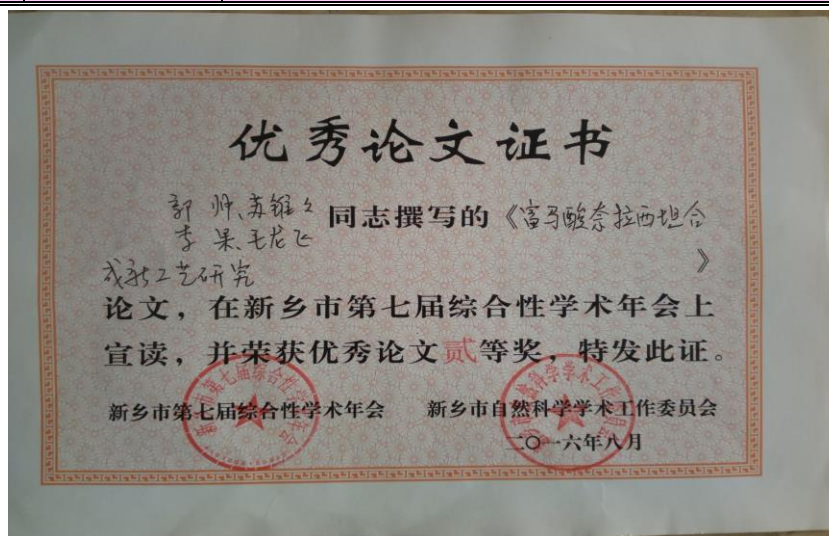 优秀论文证书
郭帅、苏维
李果、毛龙飞
同志撰写的《富马酸奈拉西坦合
成新工艺研究》
论文，在新乡市第七届综合性学术年会上
宣读，并荣获优秀论文贰等奖，特发此证。
新乡市第七届综合性学术年会 新乡市自然科学学术工作委员会
二〇一六年八月